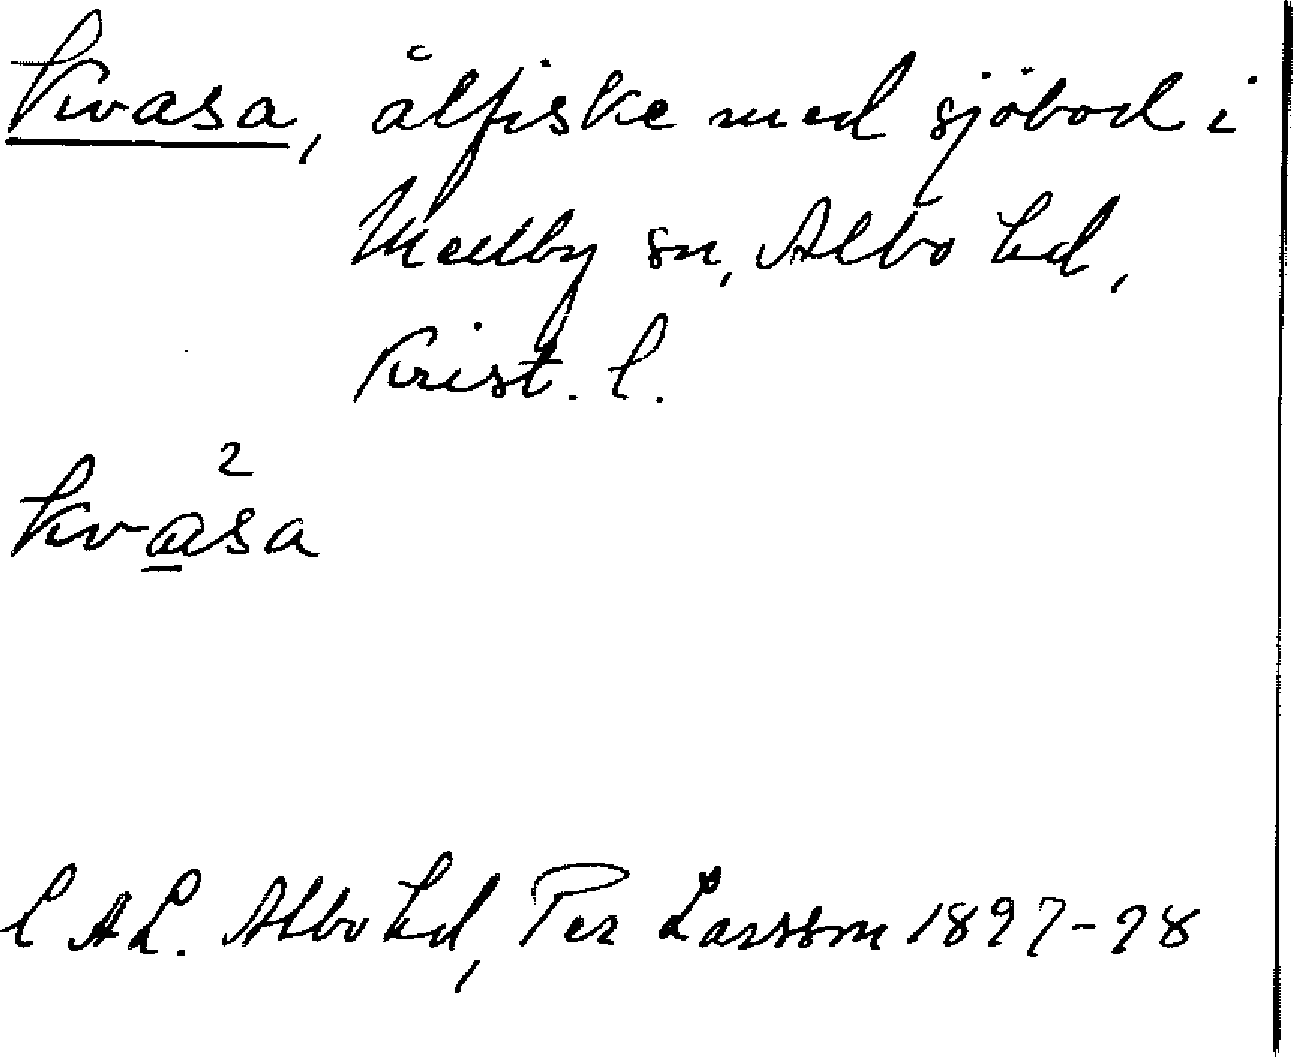 Kvasa, ålfiske med sjöbod i
Mellby sn, Albo hd,
Krist. l.
2
kvasa
l AL. Albo hd, Per Larsson 1897-98